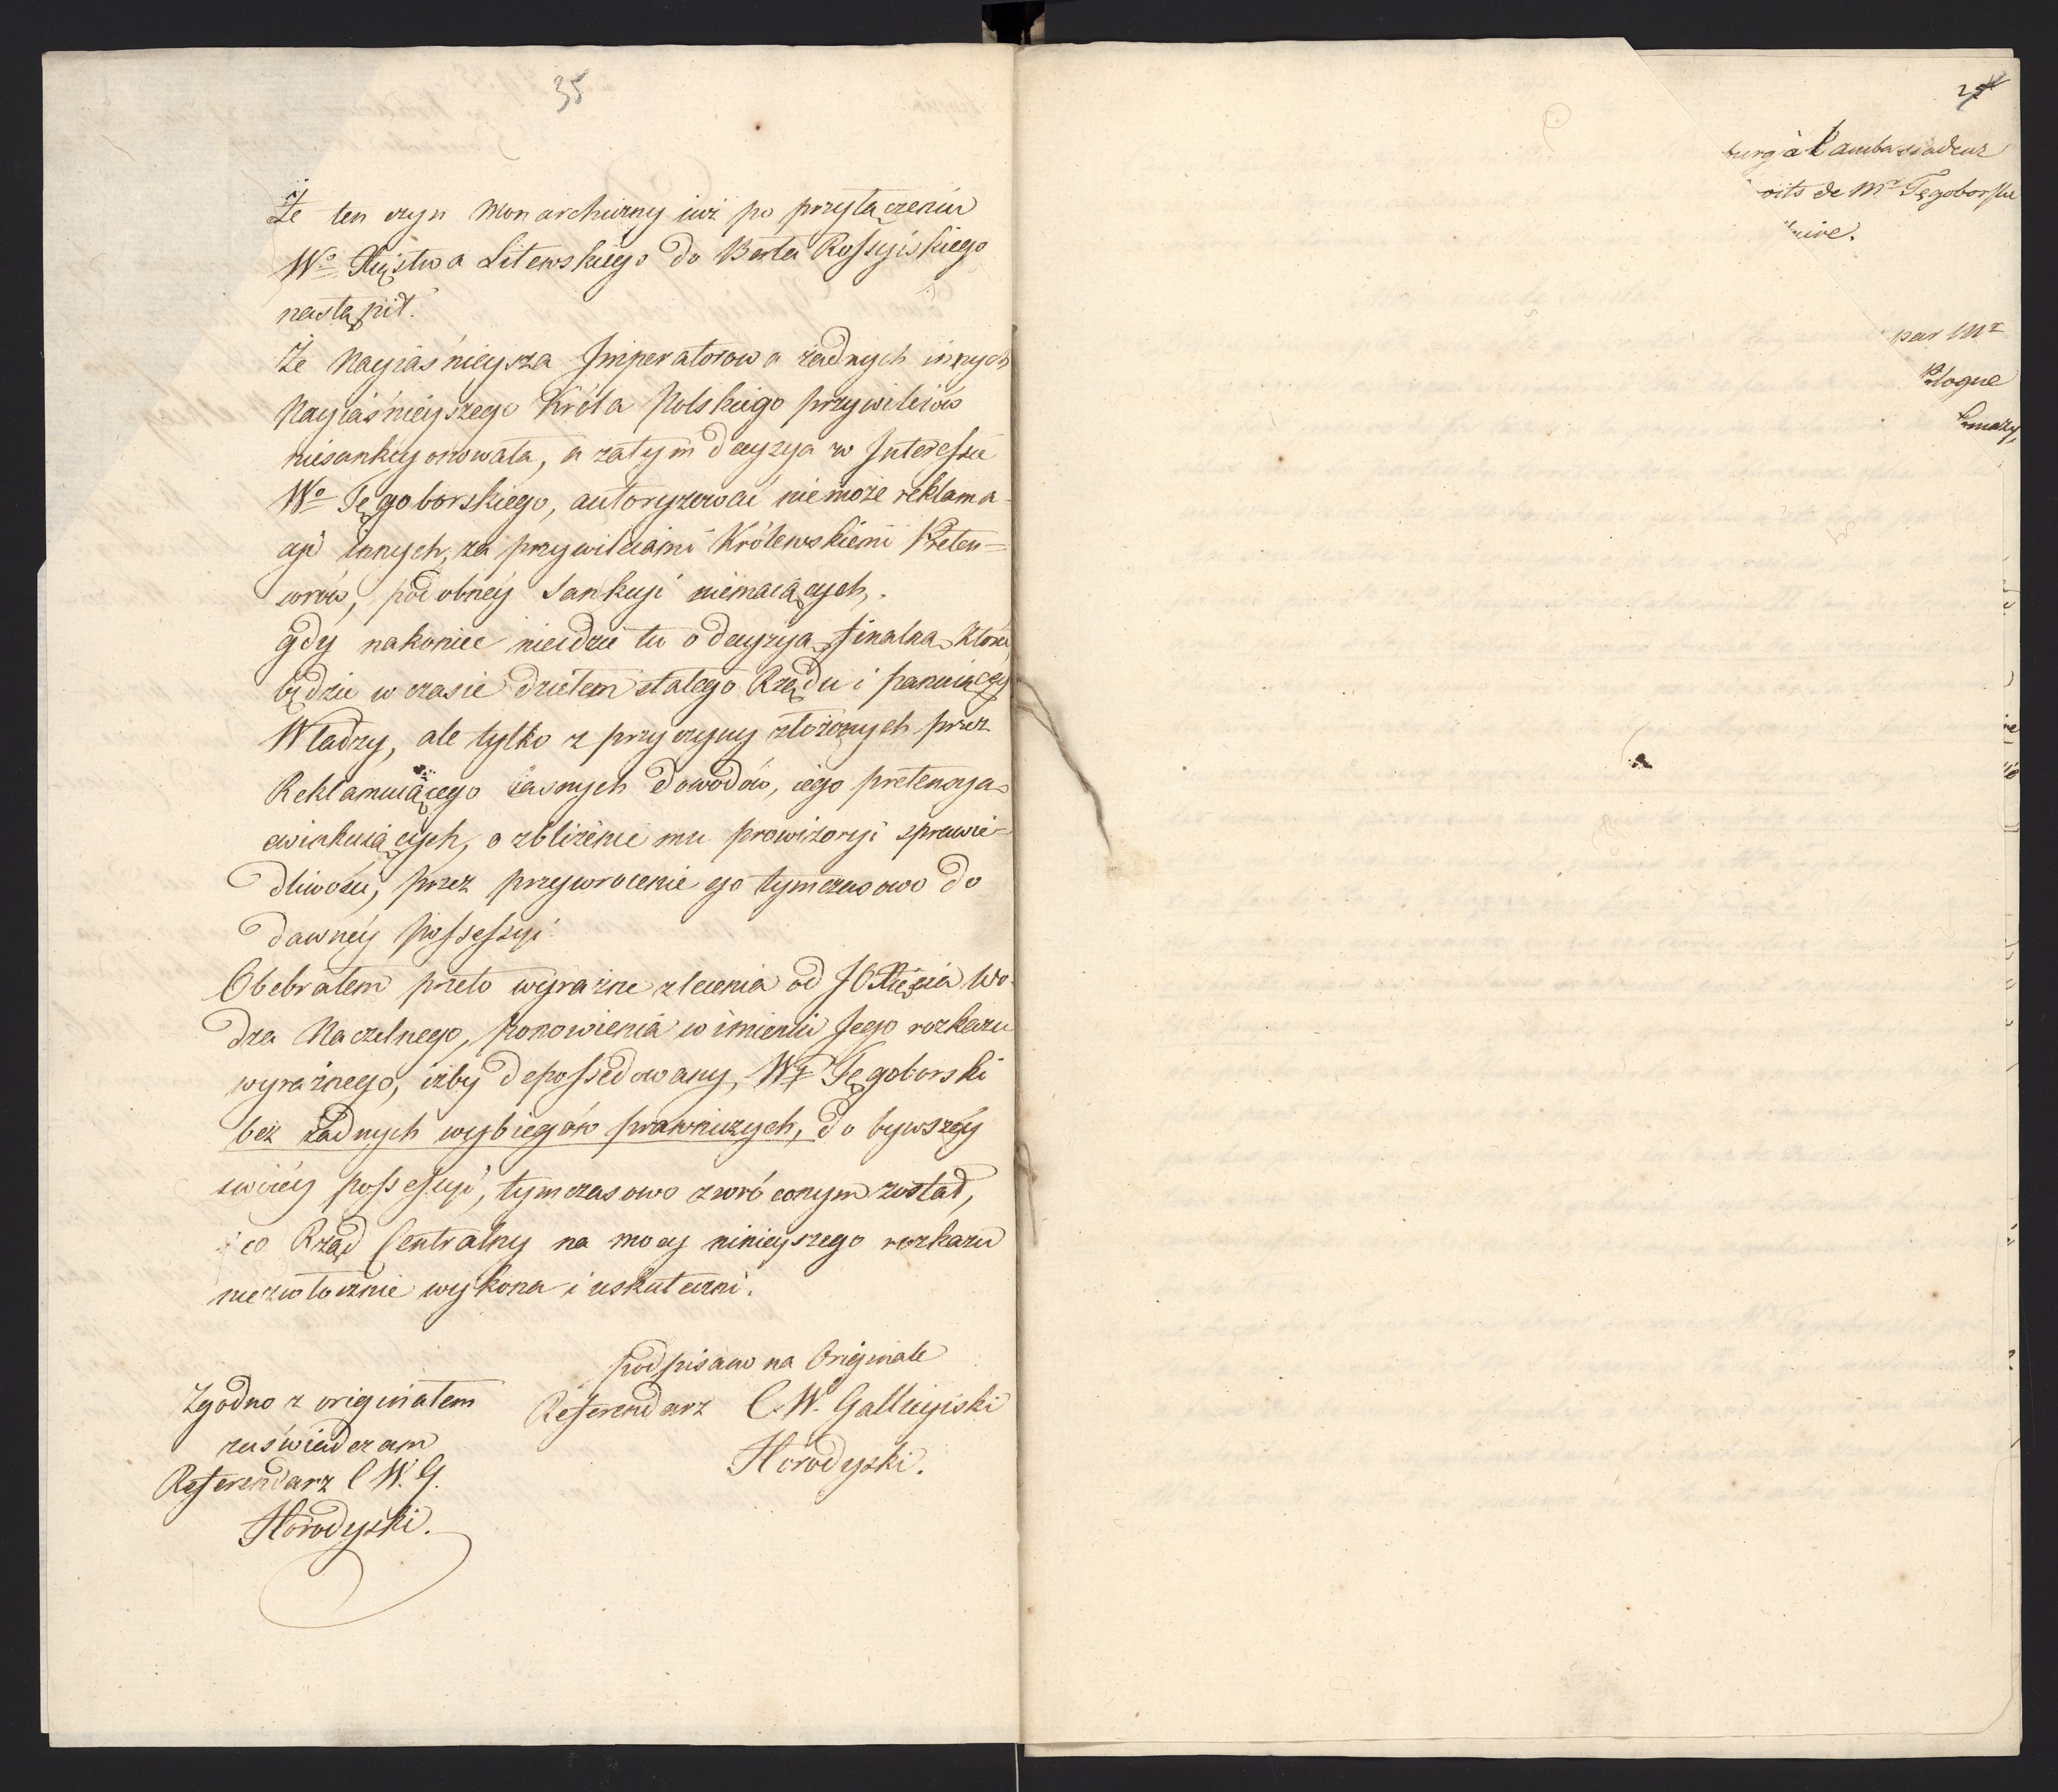 35
Że ten czyn Monarchiczny iuż po przyłączeniu
Wo Xięstwa Litewskiego do Berła Rossyiskiego
nastąpił.
Że Nayiaśnieysza Imperatorowa żadnych innych
Nayiaśnieyszego Króla Polskiego przywileiów
niesankcyonowała, a zatym decyzya w Interessie
Wo Tęgoborskiego, autoryzować niemoże reklama-
cyi innych, za przywileiami Królewskiemi Preten-
sorów, podobney Sankcyi niemaiących,
gdy nakoniec nieidzie tu o decyzyą finalną, która
będzie w czasie dziełem stałego Rządu i panuiącey
Władzy, ale tylko z przyczyny złożonych przez
Reklamuiącego iasnych dowodów, iego pretensyą
ewinkuiących, o zbliżenie mu prowizoryi sprawie-
dliwości, przez przywrocenie ego tymczasowo do
dawney possessyi.
Obebrałem przeto wyraźne zlecenia od JO Xięcia Wo-
dza Naczelnego, ponowienia w imieniu Jego rozkazu
wyraźnego, iżby depossedowany, Wy Tęgoborski
bez żadnych wybiegów prawniczych, do bywszey
swoiey possessyi, tymczasowo zwróconym został,
co Rząd Centralny na mocy ninieyszego rozkazu
niezwłocznie wykona i uskuteczni.
podpisano na Originale
Referendarz C. W. Gallicyiski
Horodyski.
Zgodno z originałem
zaświadczam
Referendarz C W. G.
Horodyski.
burg à l'ambassadeur
oits de Mr Tęgoborski
par Mr